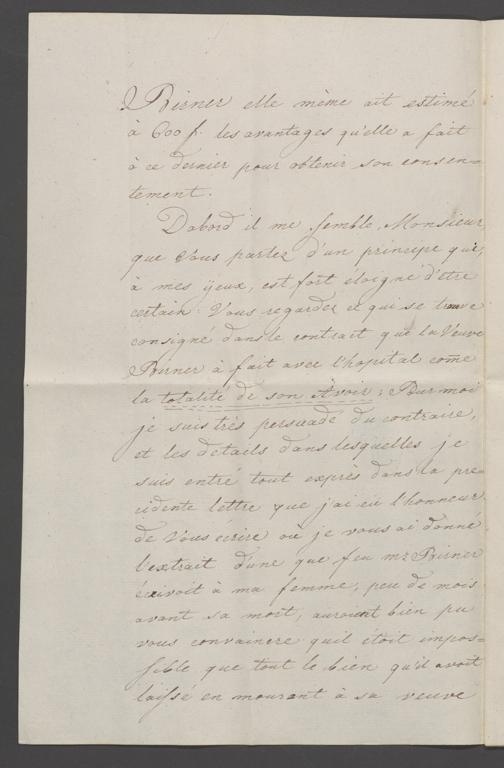 Birner elle même ait estimé
à 600 f. les avantages qu'elle a fait
à ce dernier pour obtenir son consen=
tement.
Dabord il me semble, Monsieur,
que Vous partez d'un principe qui,
à mes yeux, est fort éloigné d'etre
certain. Vous regardez ce qui se trouve
consigné dans le contrait que la Veuve
Birner à fait avec l'hopital come
la totalité de son Avoir; Pour moi
je suis très persuadé du contraire,
et les details dans lesquelles je
suis entré tout exprès dans la pre=
cidente lettre que j'ai eu l'honneur
de Vous écrire où je vous ai donné
l'extrait d'une que feu mr Birner
écrivoit à ma femme, peu de mois
avant sa mort, auroient bien pu
vous convaincre quil étoit impos=
sible que tout le bien qu'il avoit
laissé en mourant à sa veuve